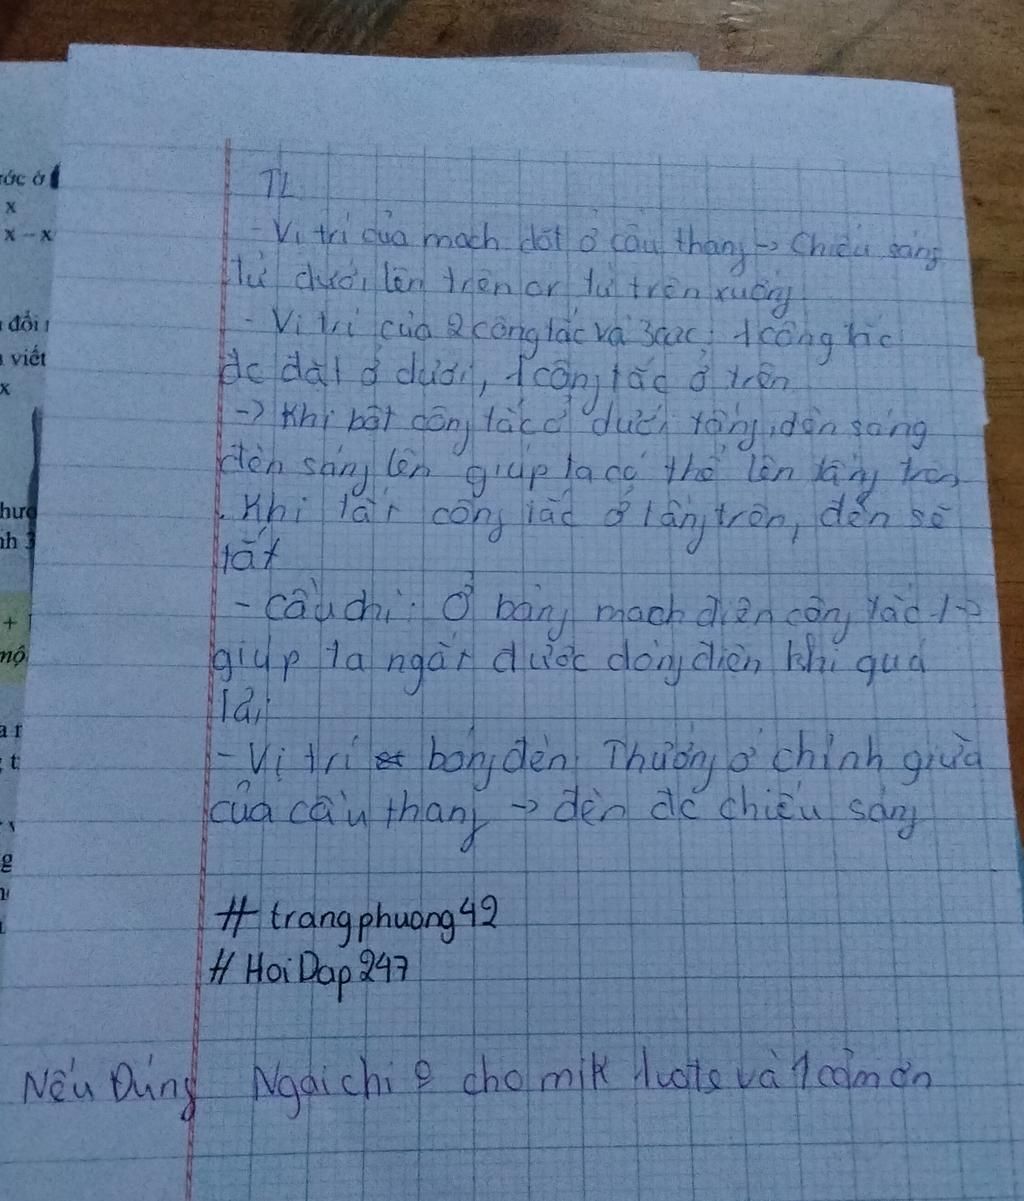 ớc ở
x
x - x
đổi
viết
x
+
TL
- Vị trí của mạch đặt ở cầu thang -> Chiếu sáng
từ dưới lên trên or từ trên xuống
- Vị trí của 2 công tắc và 3 cực: 1 công tắc
đc đặt ở dưới, 1 công tắc ở trên
-> Khi bật công tắc ở dưới tầng, đèn sáng
đèn sáng lên giúp ta có thể lên tầng trên
. Khi tắt công tắc ở tầng trên, đèn sẽ
tắt
- Cầu chì: Ở bảng mạch điện công tắc 1 ->
giúp ta ngắt được dòng điện khi quá
tải
- Vị trí bóng đèn: Thường ở chính giữa
của cầu thang -> đèn đc chiếu sáng
# trangphuong42
# HoiDap247
Nếu Đúng Ngại chi e cho mik 1 vote và 1 cảm ơn